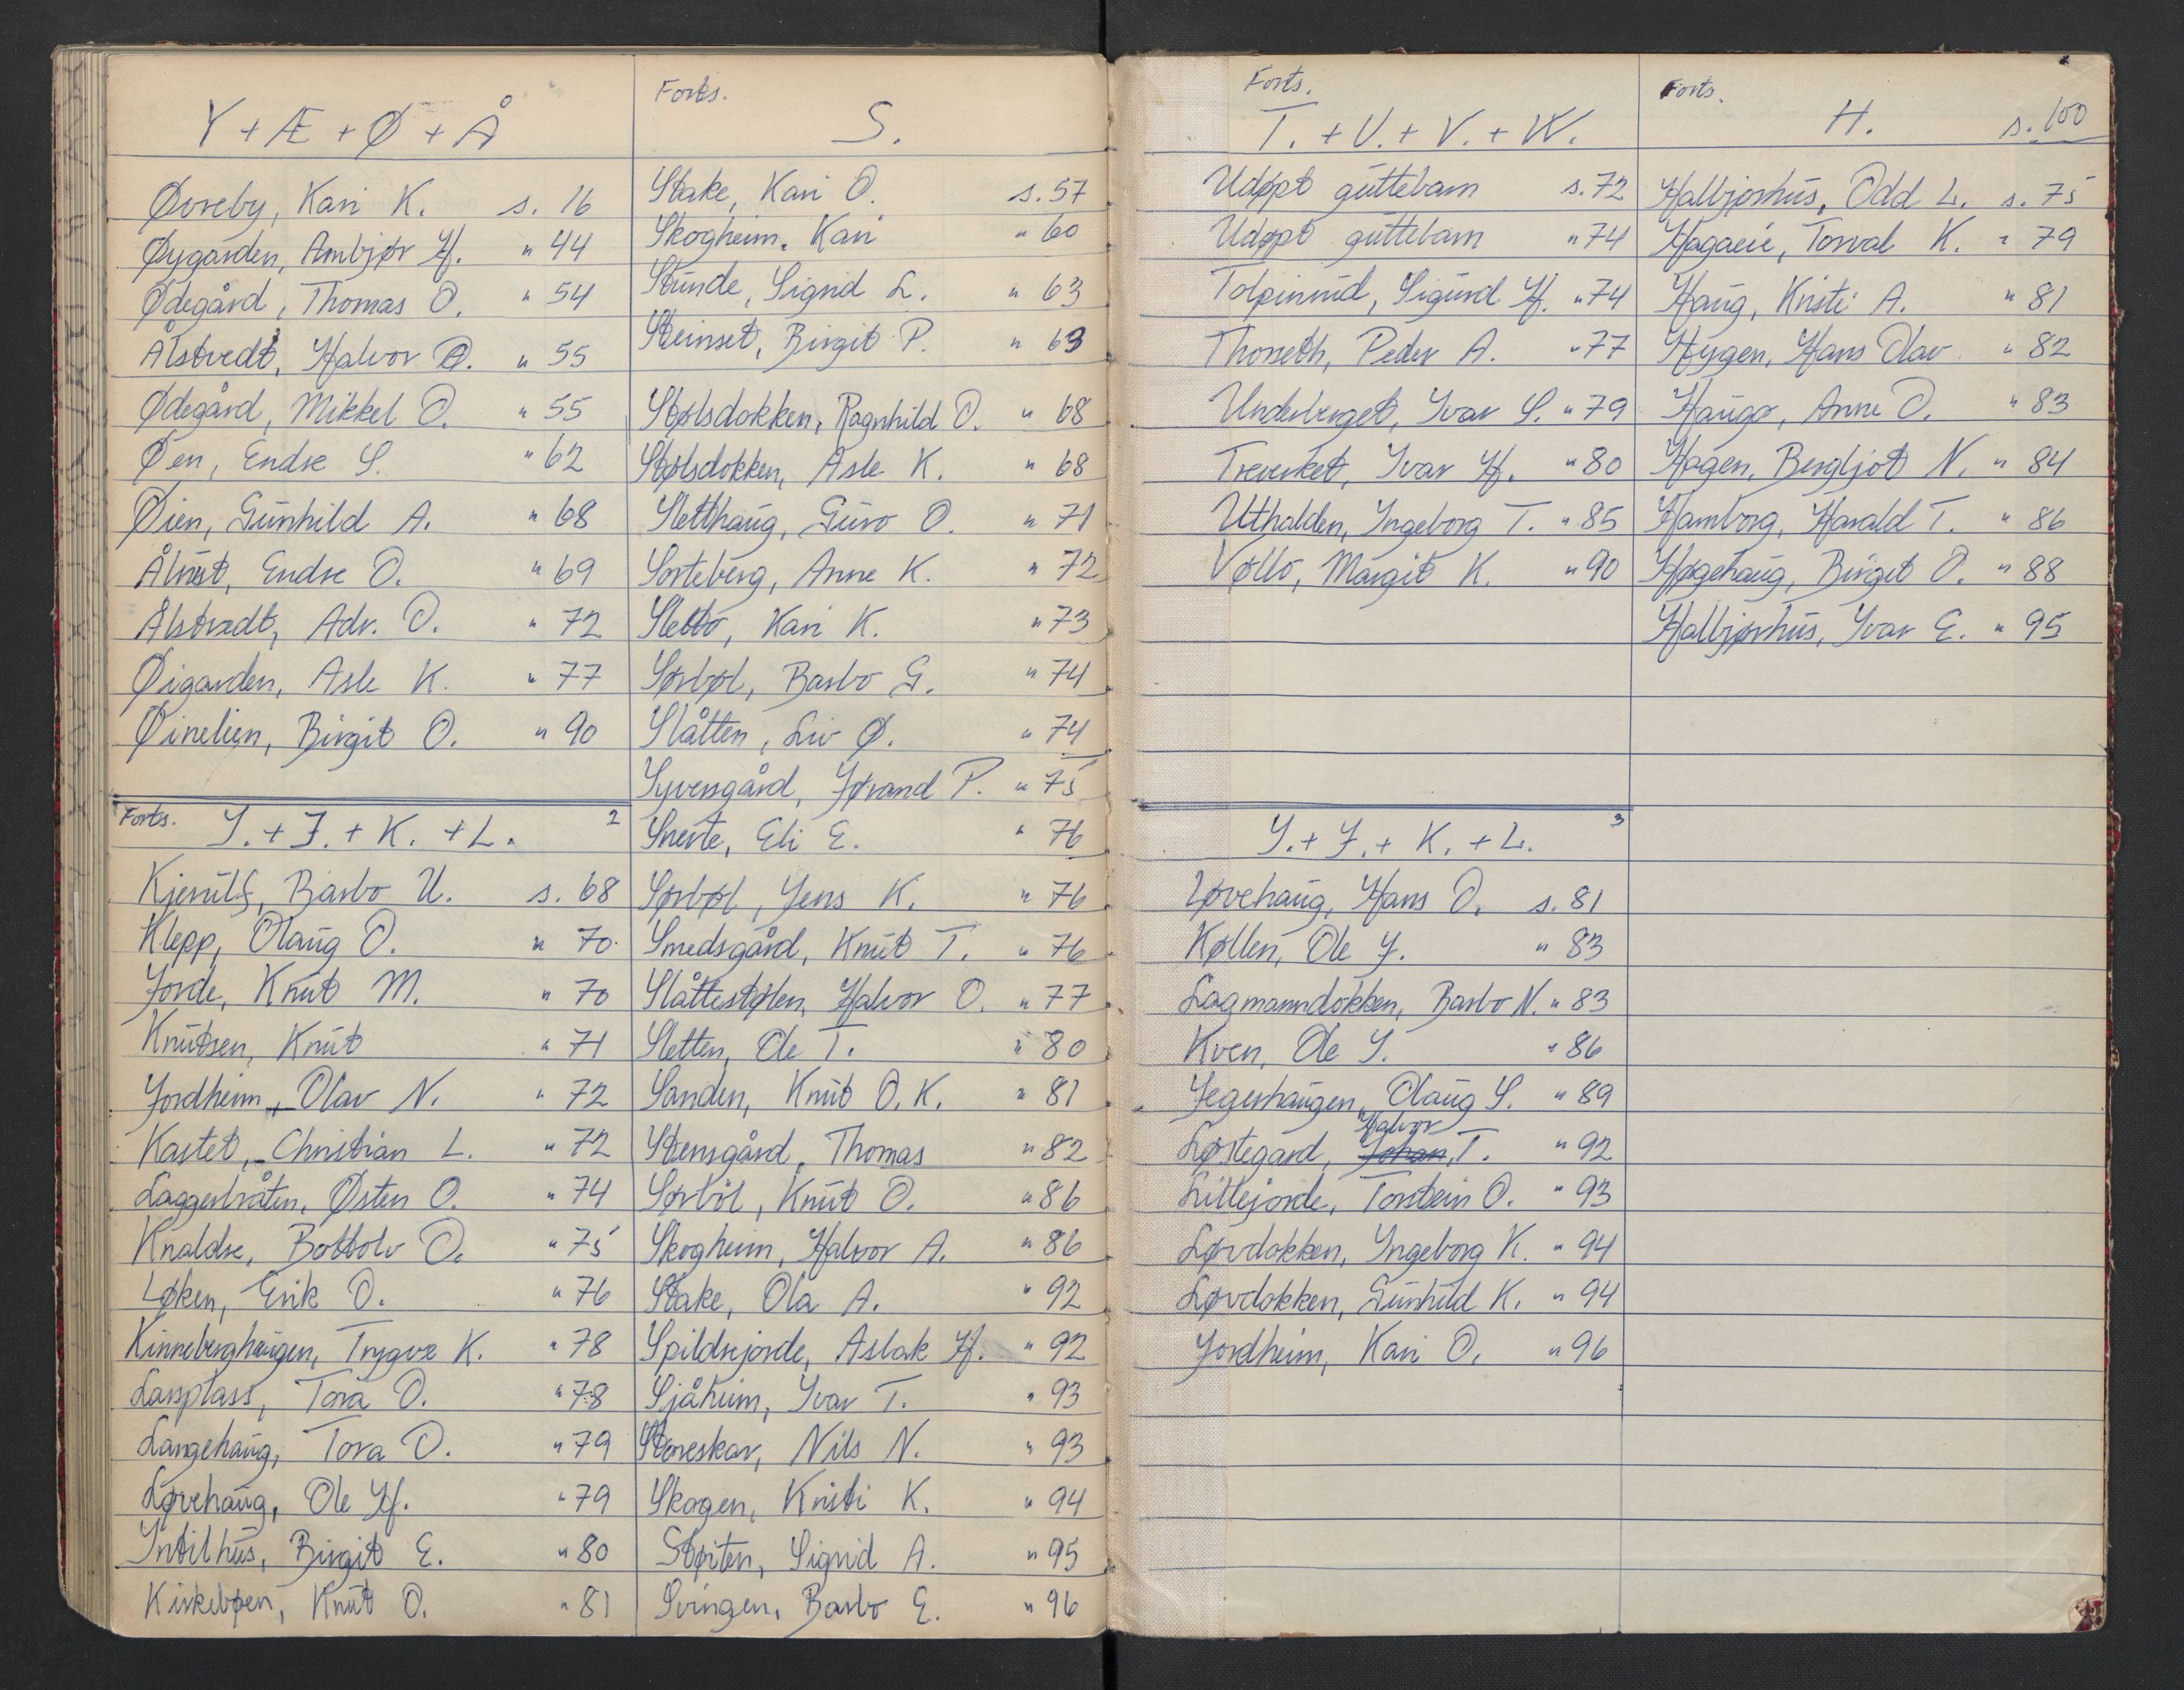 Y + Æ + Ø + Å
Øvreby, Kari K. s. 16
Øygarden, Ambjør H. " 44
Ødegård, Thomas O. " 54
Ålstvedt, Halvor O. " 55
Ødegård, Mikkel O. " 55
Øen, Endre S. " 62
Øien, Gunhild A. " 68
Endre O. " 69
Ålstvedt, Adr. O. " 72
Øigarden, Asle K. " 77
Øinelien, Birgit O. " 90
Forts. I. + J. + K. + L. 2
Kjerulf, Barbo U. s. 68
Klepp, Olaug O. " 70
Jorde, Knut M. " 70
Knutsen, Knut " 71
Jordheim, Olav N. " 72
Kastet, Christian L. " 72
Laggerbråten, Østen O. " 74
Knaldre, Bottolv O. " 75
Løken, Erik O. " 76
Kinneberghaugen, Trygve K. " 78
Larsplass, Tora O. " 78
Langehaug, Tora O. " 79
Løvehaug, Ole H. " 79
Intilhus, Birgit E. " 80
Kirkebøen, Knut O. " 81
Forts.
S.
Stake, Kari O. s. 57
Skogheim, Kari " 60
Stunde, Sigrid L. " 63
Steinset, Birgit P. " 63
Stølsdokken, Ragnhild O. " 68
Stølsdokken, Asle K. " 68
Sletthaug, Guro O. " 71
Sorteberg, Anne K. " 72
Sletto, Kari K. " 73
Sørbøl, Barbo G. " 74
Slåtten, Liv Ø. " 74
Syversgård, Jørand P. " 75
Snerte, Eli E. " 76
Sørbøl, Jens K. " 76
Smedsgård, Knut T. " 76
Slåttestølen, Halvor O. " 77
Sletten, Ole T. " 80
Sanden, Knut O. K. " 81
Stensgård, Thomas " 82
Sørbøl, Knut O. " 86
Skogheim, Halvor A. " 86
Stake, Ola A. " 92
Spildrejorde, Aslak H. " 92
Sjåheim, Ivar T. " 93
Storeskar, Nils N. " 93
Skogen, Kristi K. " 94
Støiten, Sigrid A. " 95
Svingen, Barbo E. " 96
Forts.
T. + U. + V. + W.
Udøpt guttebarn s. 72
Udøpt guttebarn " 74
Tolpinrud, Sigurd H. " 74
Thorseth, Peder A. " 77
Underberget, Ivar S. " 79
Treverket, Ivar H. " 80
Uthalden, Ingeborg T. " 85
Vøllo, Margit K. " 90
I. + J. + K. + L. 3
Løvehaug, Hans O. s. 81
Køllen, Ole J. " 83
Lagmanndokken, Barbo N. " 83
Kven, Ole S. " 86
Jegerhaugen, Olaug S. " 89
Halvor
Løstegard, Johan, T. " 92
Littejorde, Torstein O. " 93
Løvdokken, Ingeborg K. " 94
Løvdokken, Gunhild K. " 94
Jordheim, Kari O. " 96
Forts.
H. s. 100
Halbjørhus, Odd L. s. 75
Torval K. " 79
Haug, Kristi A. " 81
Hygen, Hans Olav " 82
Haugo, Anne O. " 83
Hagen, Bergljot N. " 84
Hamborg, Harald T. " 86
Høgehaug, Birgit O. " 88
Halbjørhus, Ivar E. " 95